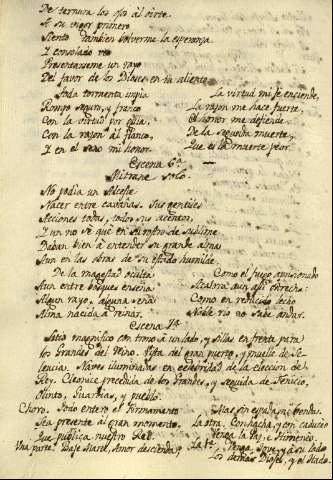 De ternura los ojos al oirte.
A su vigor primero
Siento tambien volverme la esperanza
Y consolado
Presentaseme un rayo
Del favor de los Dioses en tu aliento.
Toda tormenta impia
Rompo seguro, y franco
Con la virtud por guia,
Con la razon al flanco,
Y en el seno mi honor.
La virtud mi fe enciende,
La razon me hace fuerte
El honor me defiende
De la segunda muerte,
Que es la muerte peor.
Escena 6ª
Mitrane solo.
No podia un Alceste
Nacer entre cavañas. Sus gentiles
Acciones todas, todos sus acentos,
Y un no se que en su rostro de sublime
Daban bien à entender su grande alma
Aun en las obras de su estado humilde
De la magestad oculta
Aun entre bosques enseña
Algun rayo, alguna seña
Alma nacida à reinar.
Como el fuego aprisionado
aun asi
Como en reducido lecho
Noble rio no sabe andar.
Escena 7ª
Sitio magnifico con trono à un lado, y sillas en frente para
los Grandes del Reino. Vista del gran puerto, y muelle de Se-
leucia. Naves iluminadas en celebridad de la eleccion de
Rey. Cleonice precedida de los Grandes, y seguida de Fenicio,
Olinto, Guardias, y pueblo.
Choro. Todo entero el Firmamento
Sea presente al gran momento,
Que publica nuestro Rei.
Una parte. Baje Marte, Amor descienda,
Mas sin espada, ni benda.
La otra. Con hacha, y con caduceo
Venga la Paz, è Himeneo.
La 1ª. Venga Jove, y à su lado
Los demas Dioses, y el Hado.